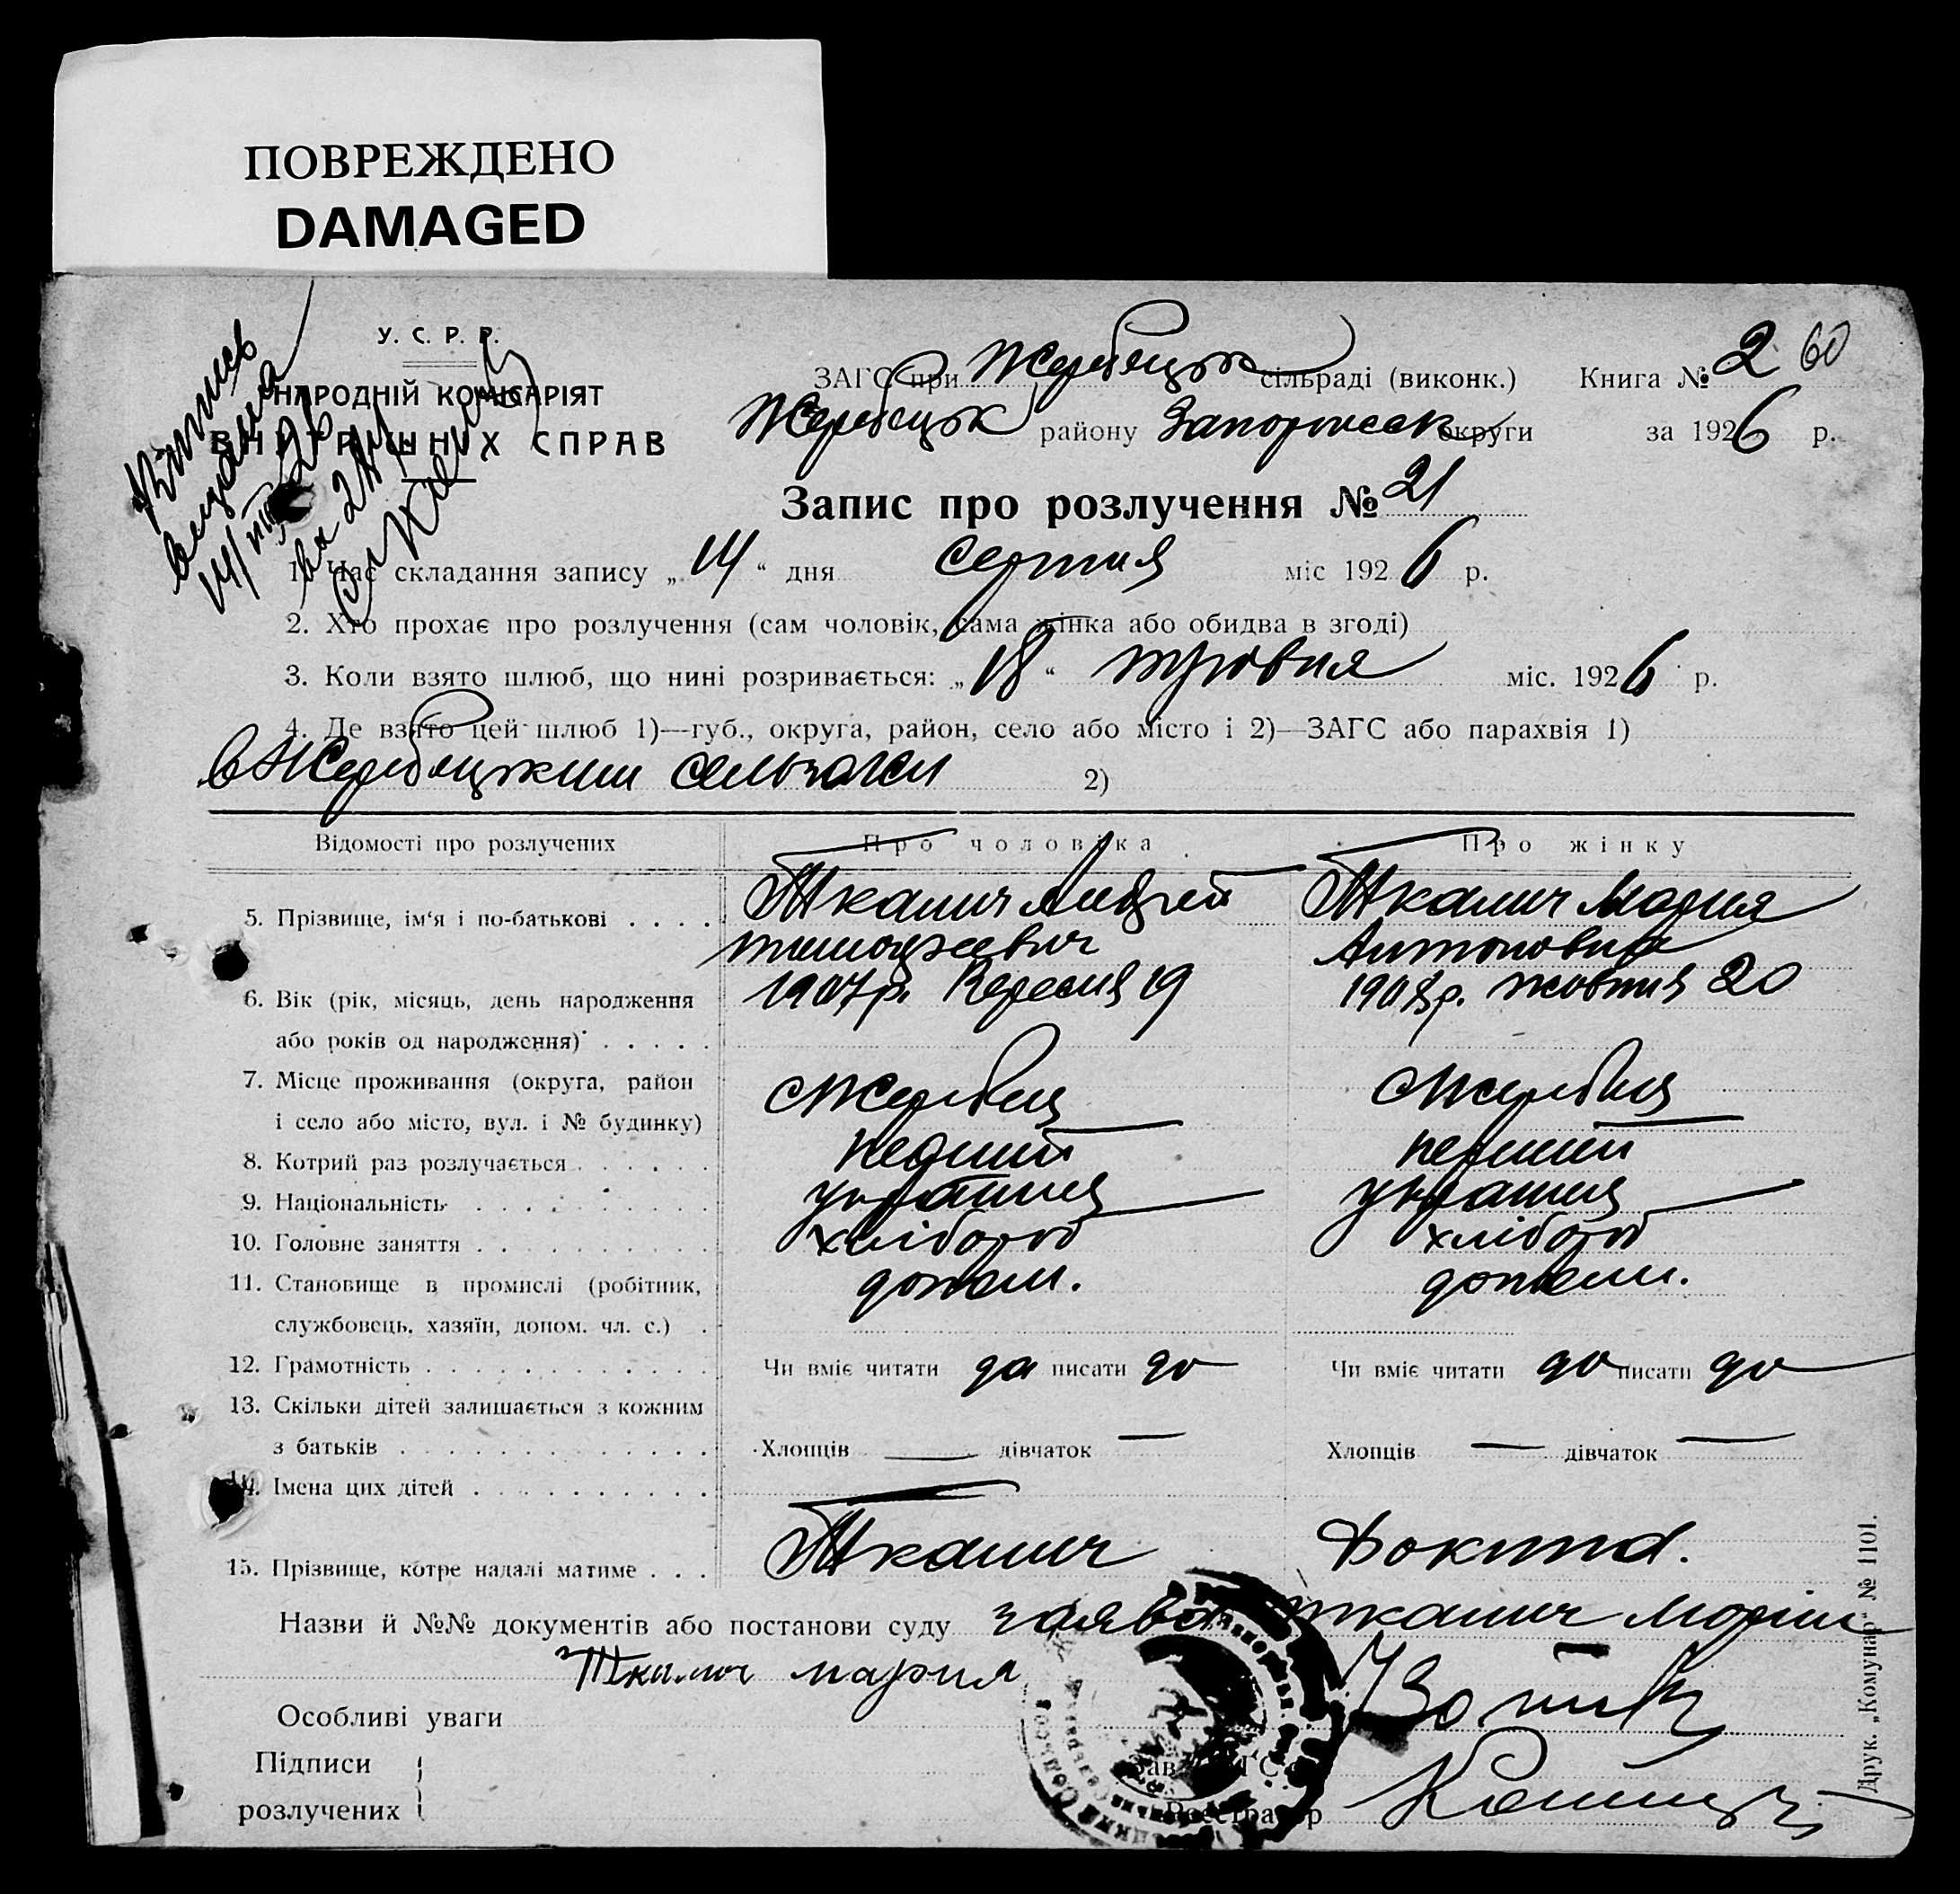 ПОВРЕЖДЕНО
DAMAGED
У. С. Р. Р.
НАРОДНІЙ КОМІСАРІЯТ
ВНУТРІШНІХ СПРАВ
ЗАГС при Жеребецьк сільраді (виконк.) Книга № 2 60
Жеребецьк району Запоріжск округи за 1926 р.
Запис про розлучення № 21
1. Час складання запису „14“ дня серпня міс 1926 р.
2. Хто прохає про розлучення (сам чоловік, сама жінка або обидва в згоді)
3. Коли взято шлюб, що нині розривається: „18“ травня міс. 1926 р.
4. Де взято цей шлюб 1)—губ., округа, район, село або місто і 2)—ЗАГС або парахвія 1)
в Жеребецьким сельзагси 2)
Відомості про розлучених Про чоловіка Про жінку
5. Прізвище, ім‘я і по-батькові . . . . Ткалич Андрей Ткалич Мария
тимофеевич Антоновна
6. Вік (рік, місяць, день народження 1907р. Вересня 19 1908р. жовтня 20
або років од народження) . . . . .
7. Місце проживання (округа, район с Жеребец с Жеребец
і село або місто, вул. і № будинку)
8. Котрий раз розлучається . . . . . . первий перший
9. Національність . . . . . . . . . украинец украинец
10. Головне заняття . . . . . . . . . хлібороб хлібороб
11. Становище в промислі (робітник, допом. допом.
службовець, хазяїн, допом. чл. с.) .
12. Грамотність . . . . . . . . . . . . Чи вміє читати да писати да Чи вміє читати да писати да
13. Скільки дітей залишається з кожним
з батьків . . . . . . . . . . . . . Хлопців — дівчаток — Хлопців — дівчаток —
14. Імена цих дітей . . . . . . . . . .
15. Прізвище, котре надалі матиме . . . Ткалич Локота.
Назви й №№ документів або постанови суду заява Ткалич Марии
Ткалич мария
Особливі уваги
Підписи
розлучених
Зав. ЗАГС'ом
Реєстратор
Друк. „Комунар“ № 1101.